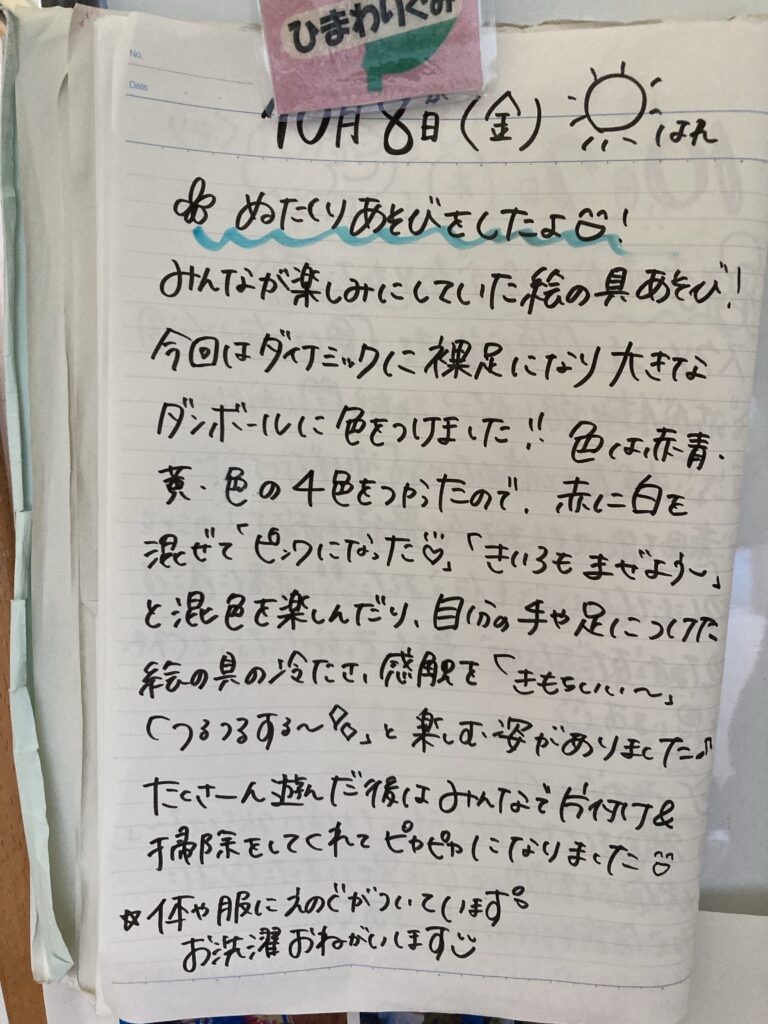 ひまわりぐみ
No.
Date
10月8日(金) はれ
ぬたくりあそびをしたよ!
みんなが楽しみにしていた絵の具あそび!
今回はダイナミックに裸足になり大きな
ダンボールに色をつけました!! 色は赤・青・
黄・色の4色をつかったので、赤に白を
混ぜて「ピンクになった♡」「きいろもまぜよう〜」
と混色を楽しんだり、自分の手や足につけた
絵の具の冷たさ、感触を「きもちいい〜」
「つるつるする〜」と楽しむ姿がありました♪
たくさーん遊んだ後はみんなで片付け&
掃除をしてくれてピカピカになりました
☆体や服にえのぐがついています。
お洗濯おねがいします